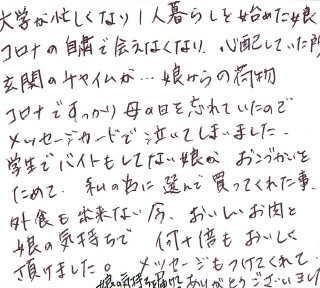 大学が忙しくなり1人暮らしを始めた娘
コロナの自粛で会えなくなり、心配していた所
玄関のチャイムが…娘からの荷物
コロナですっかり母の日を忘れていたので
メッセージカードで泣いてしまいました。
学生でバイトもしてない娘が おこづかいを
ためて、私の為に選んで買ってくれた事。
外食も出来ない今、おいしいお肉と
娘の気持ちで 何十倍もおいしく
頂けました。 メッセージもつけてくれて
娘の気持ちを届けて ありがとうございました